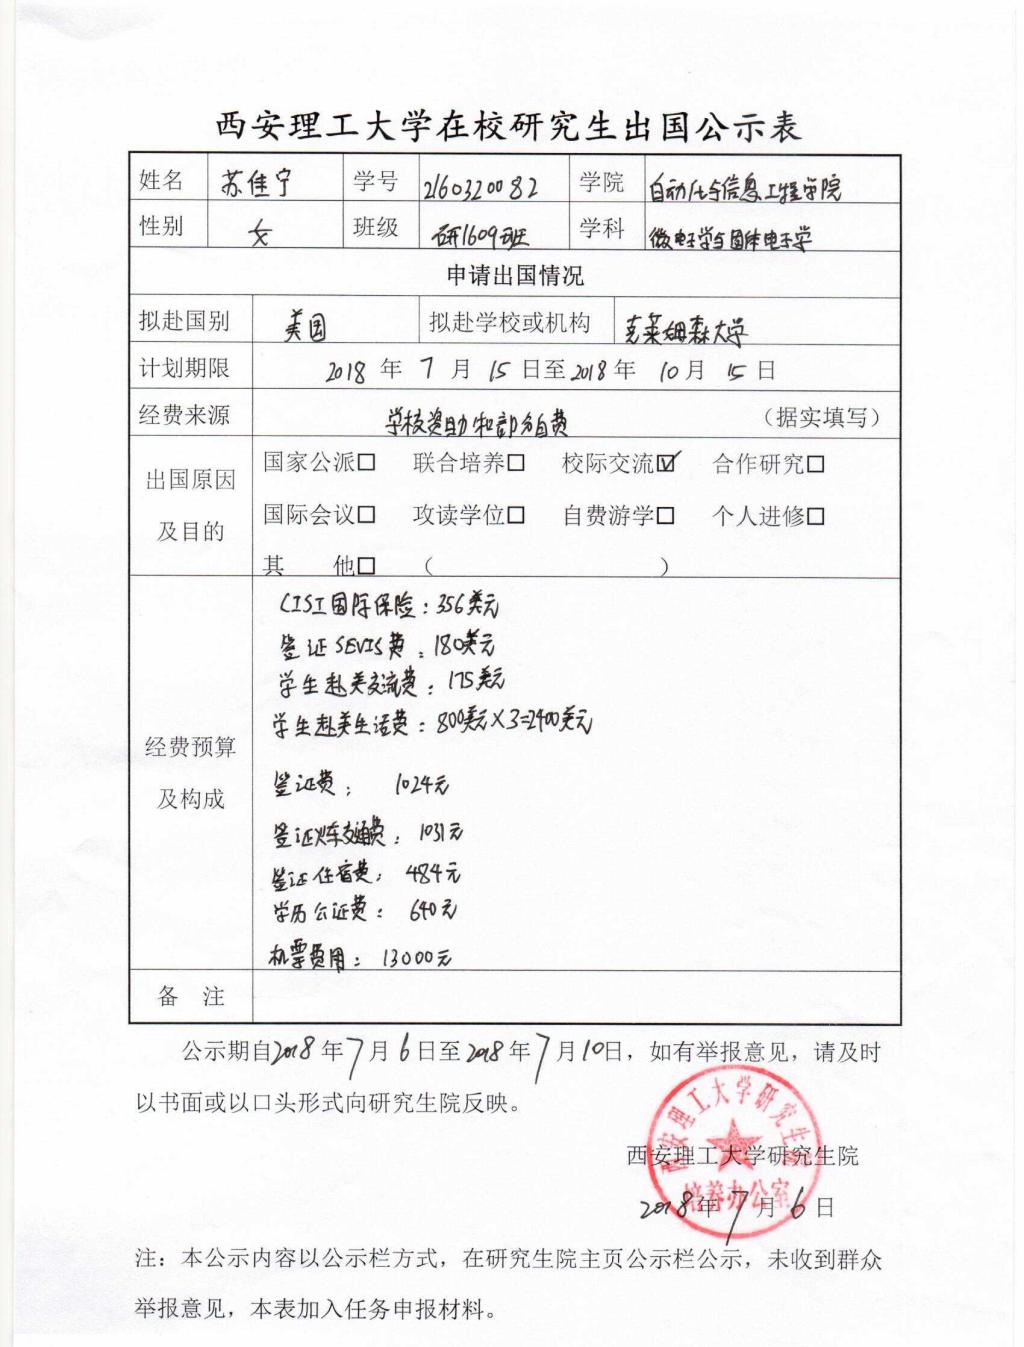 西安理工大学在校研究生出国公示表
姓名 苏佳宁 学号 2160320082 学院 自动化与信息工程学院
性别 女 班级 研1609班 学科 微电子学与固体电子学
申请出国情况
拟赴国别 美国 拟赴学校或机构 克莱姆森大学
计划期限 2018 年 7 月 15 日至 2018 年 10 月 15 日
经费来源 学校资助和部分自费 （据实填写）
出国原因及目的
国家公派□ 联合培养□ 校际交流☑ 合作研究□
国际会议□ 攻读学位□ 自费游学□ 个人进修□
其 他□ （ ）
经费预算及构成
CISI国际保险：356美元
签证SEVIS费：180美元
学生赴美交流费：175美元
学生赴美生活费：800美元×3=2400美元
签证费： 1024元
签证火车交通费：1031元
签证住宿费：484元
学历公证费：640元
机票费用：13000元
备 注
公示期自2018年7月6日至2018年7月10日，如有举报意见，请及时
以书面或以口头形式向研究生院反映。
西安理工大学研究生院
培养办公室
西安理工大学研究生院
2018年7月6日
注：本公示内容以公示栏方式，在研究生院主页公示栏公示，未收到群众
举报意见，本表加入任务申报材料。